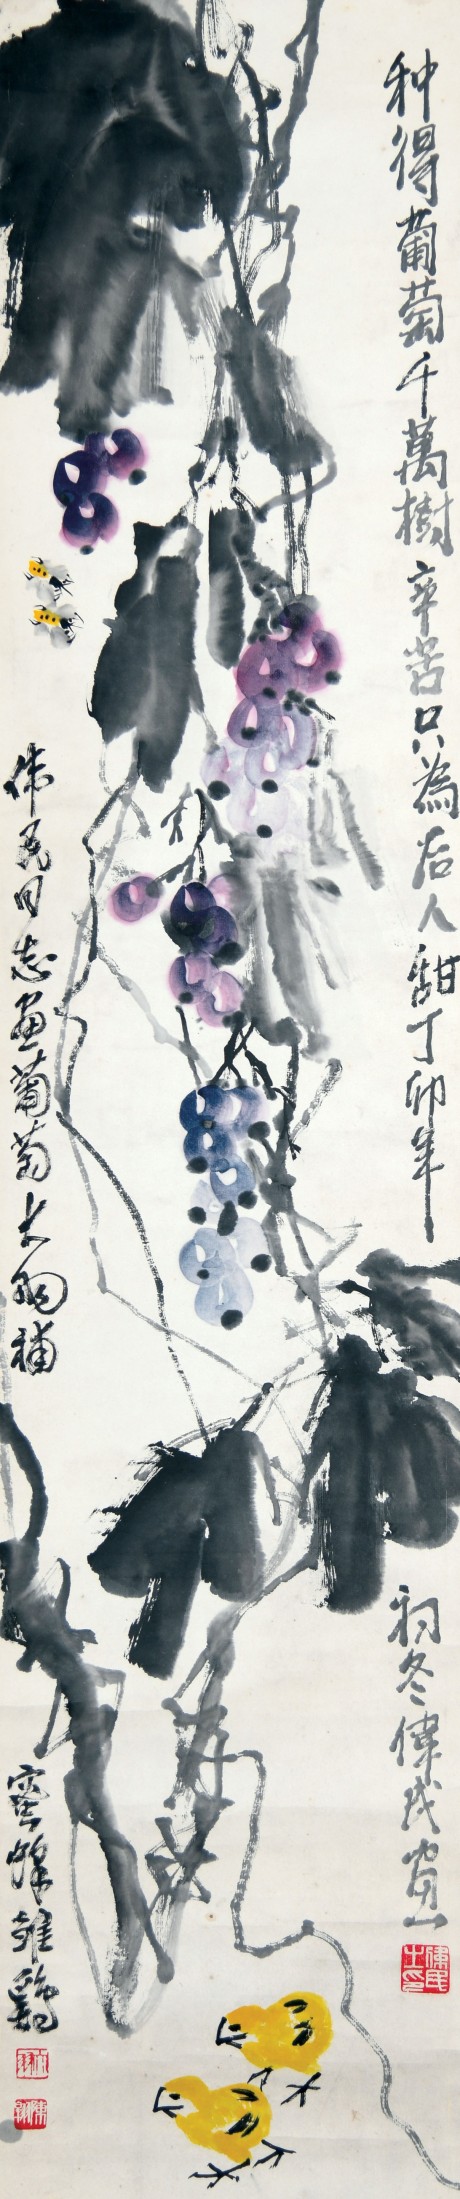 种得葡萄千萬樹辛苦只為后人甜丁卯年
初冬偉民畫
伟民同志画葡萄大羽補
蜜蜂雏鷄